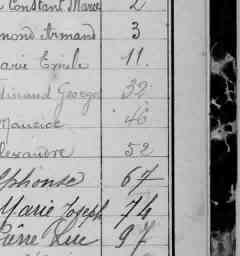 Constant Marie 2
mond Armand 3
arie Emile 11.
dinand Georges 32
Maurice 46
lexandre 52
lphonse 67
Marie Joseph 74
ière Luc 97